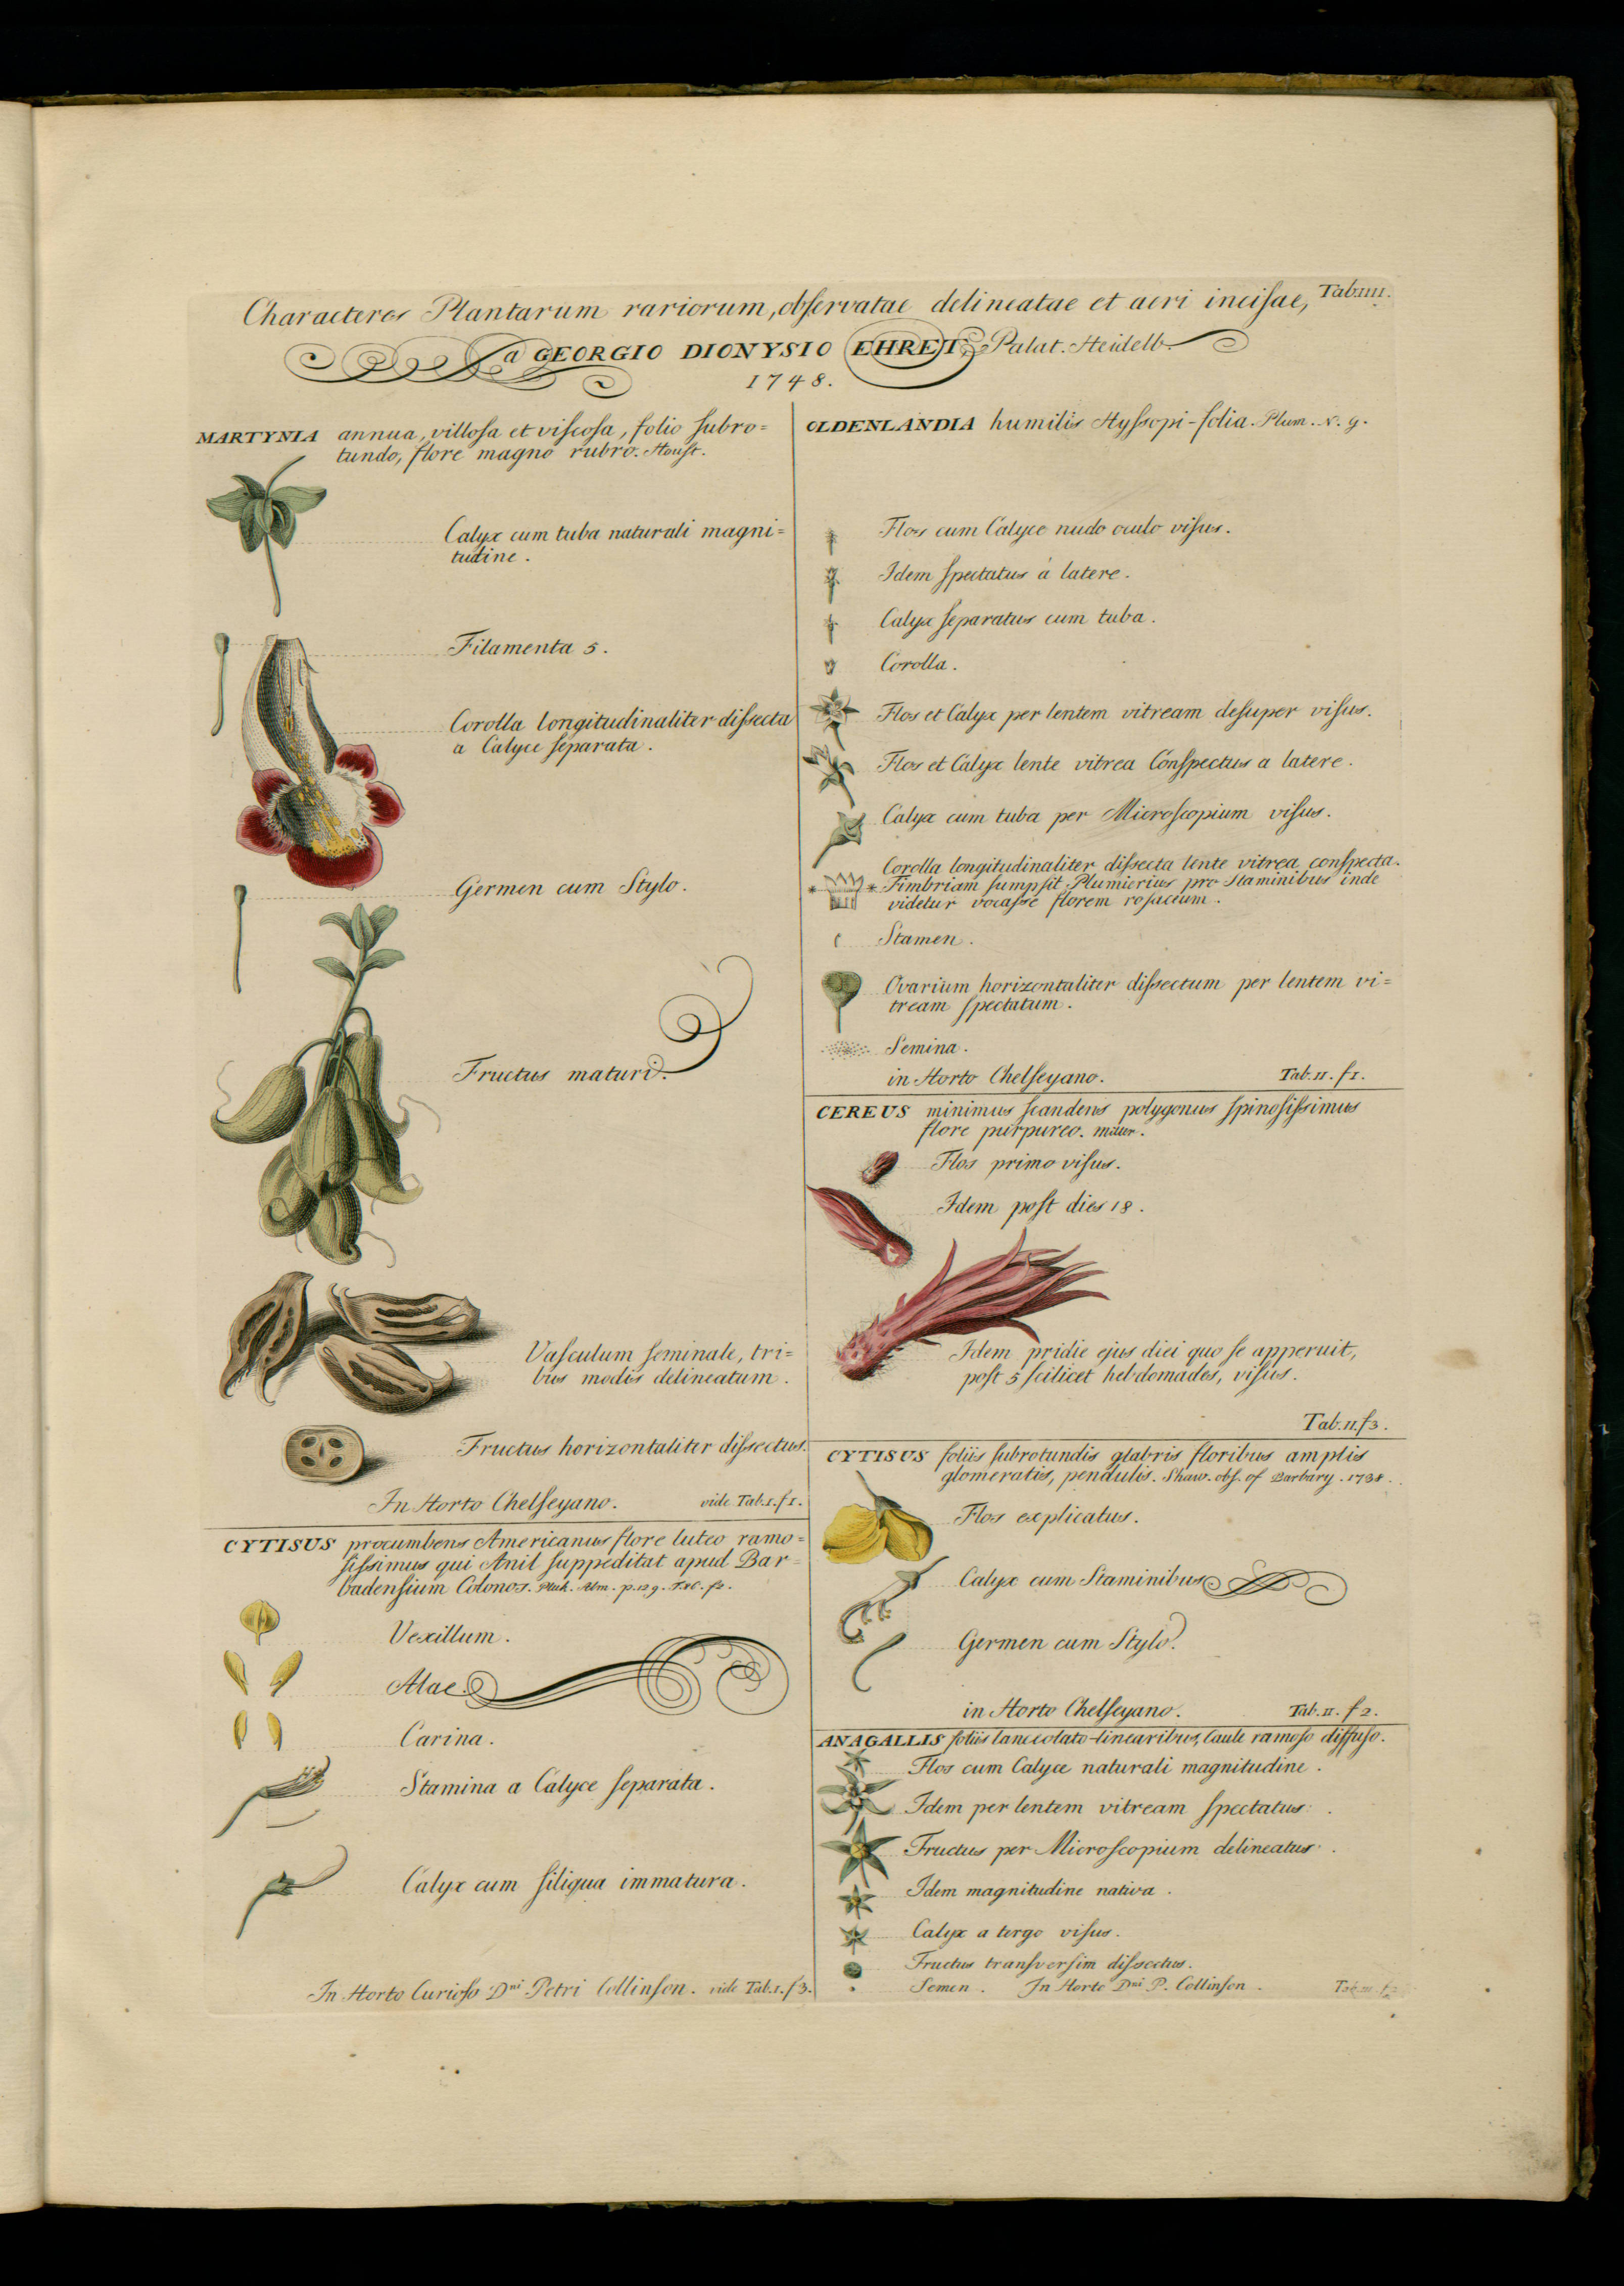 Characteres Plantarum rariorum, obſervatae delineatae et aeri inciſae, Tab.IIII.
a GEORGIO DIONYSIO EHRET, Palat. Heidelb.
1748.
MARTYNIA annua, villoſa et viſcoſa, folio ſubro=
tundo, flore magno rubro. Houſt.
Calyx cum tuba naturali magni=
tudine.
Filamenta 5.
Corolla longitudinaliter diſsecta
a Calyce ſeparata.
Germen cum Stylo.
Fructus maturi.
Vaſculum ſeminale, tri=
bus modis delineatum.
Fructus horizontaliter diſsectus.
In Horto Chelſeyano. vide Tab.I.f1.
CYTISUS procumbens Americanus flore luteo ramo=
ſiſsimus qui Anil ſuppeditat apud Bar=
badenſium Colonos. Pluk. Alm. p.129. T.86. f2.
Vexillum.
Alae.
Carina.
Stamina a Calyce ſeparata.
Calyx cum ſiliqua immatura.
In Horto Curioſo Dni Petri Collinſon. vide Tab.I.f3.
OLDENLANDIA humilis Hyſsopi-folia. Plum. N. g.
Flos cum Calyce nudo oculo viſus.
Idem ſpectatus à latere.
Calyx ſeparatus cum tuba.
Corolla.
Flos et Calyx per lentem vitream deſuper viſus.
Flos et Calyx lente vitrea Conſpectus a latere.
Calyx cum tuba per Microſcopium viſus.
Corolla longitudinaliter diſsecta lente vitrea conſpecta.
* * Fimbriam ſumpſit Plumierius pro Staminibus inde
videtur vocaſse florem roſaceum.
Stamen.
Ovarium horizontaliter diſsectum per lentem vi=
tream ſpectatum.
Semina.
in Horto Chelſeyano. Tab.II.f1.
CEREUS minimus ſcandens polygonus ſpinoſiſsimus
flore purpureo.
Flos primo viſus.
Idem poſt dies 18.
Idem pridie ejus diei quo ſe apperuit,
poſt 5 ſcilicet hebdomades, viſus.
Tab.II.f3.
CYTISUS foliis ſubrotundis glabris floribus amplis
glomeratis, pendulis. Shaw. obſ. of Barbary. 1738.
Flos explicatus.
Calyx cum Staminibus
Germen cum Stylo.
in Horto Chelſeyano. Tab.II.f2.
ANAGALLIS foliis lanceolato-linearibus, Caule ramoſo diffuſo.
Flos cum Calyce naturali magnitudine.
Idem per lentem vitream ſpectatus.
Fructus per Microſcopium delineatus.
Idem magnitudine nativa.
Calyx a tergo viſus.
Fructus tranſverſim diſsectus.
Semen. In Horto Dni P. Collinſon.